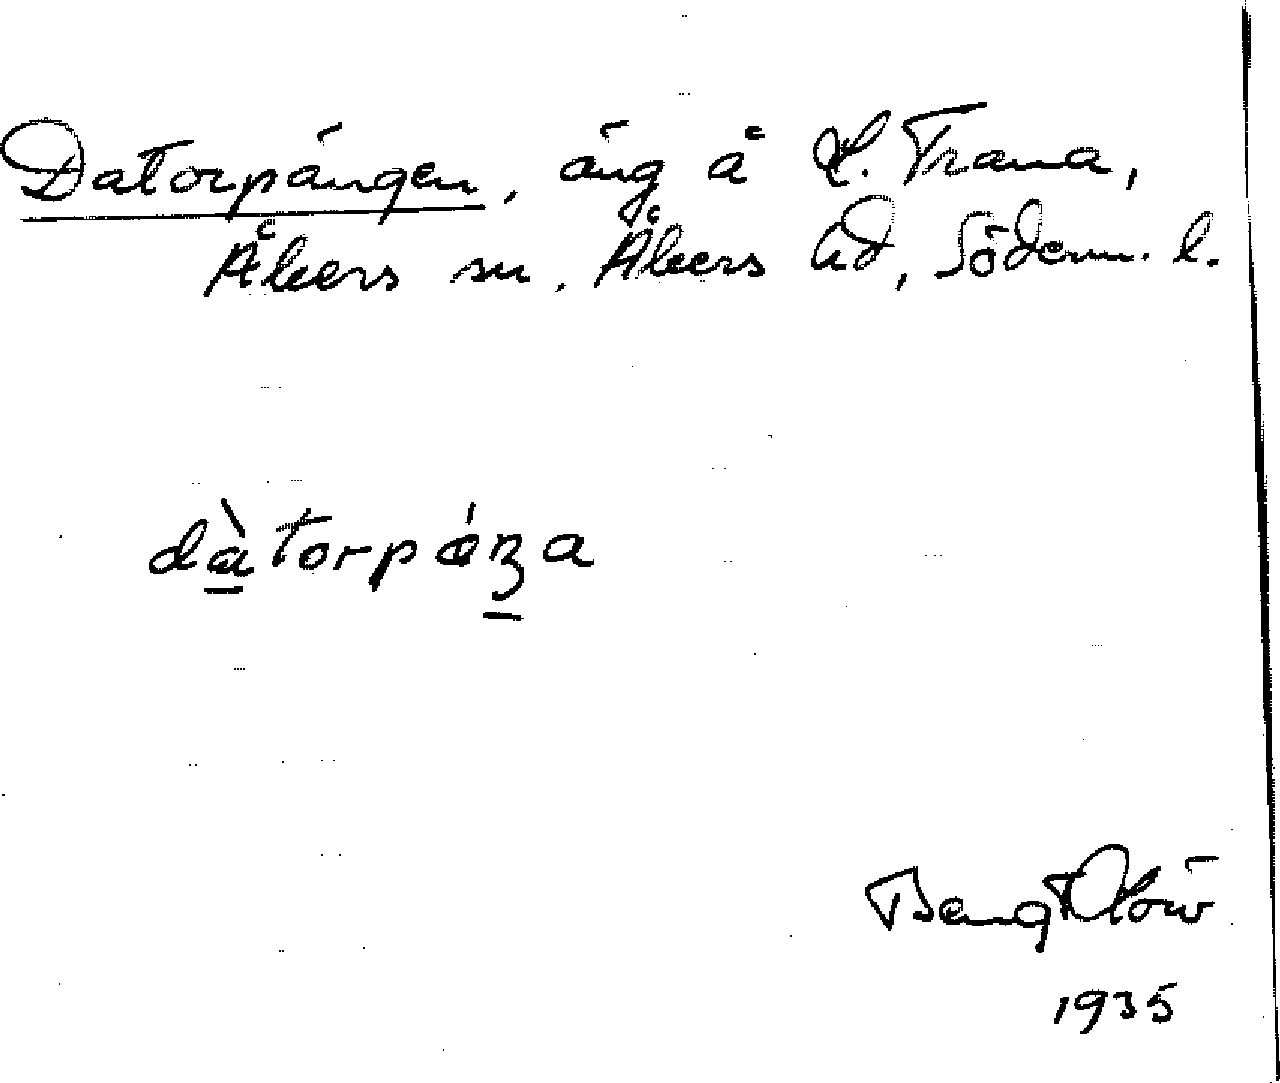 Datorpängen, äng å L. Trana,
Åkers sn, Åkers hd, Söderm. l.
dàtorpáŋa
1935